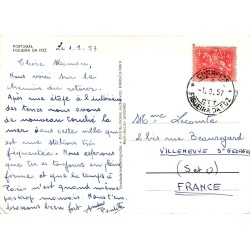 PORTUGAL
FIGUEIRA DA FOZ
Le 1.9.57
Chère Maman,
Nous voici sur le
chemin du retour.
Après une étape à l'intérieur
des terres nous avons
de nouveau touché la
mer dans cette ville qui
est une station très
fréquentée. Nous espérons
que tu es toujours en pleine
forme et que le temps à
Paris n'est quand même pas
trop mauvais. Nous t'em-
brassons bien fort
CORREIOS
-1.9.57
CTT
FIGUEIRA DA FOZ
Mme Lecomte
2 bis rue Beauregard
VILLENEUVE St GEORGES
(S et O)
FRANCE